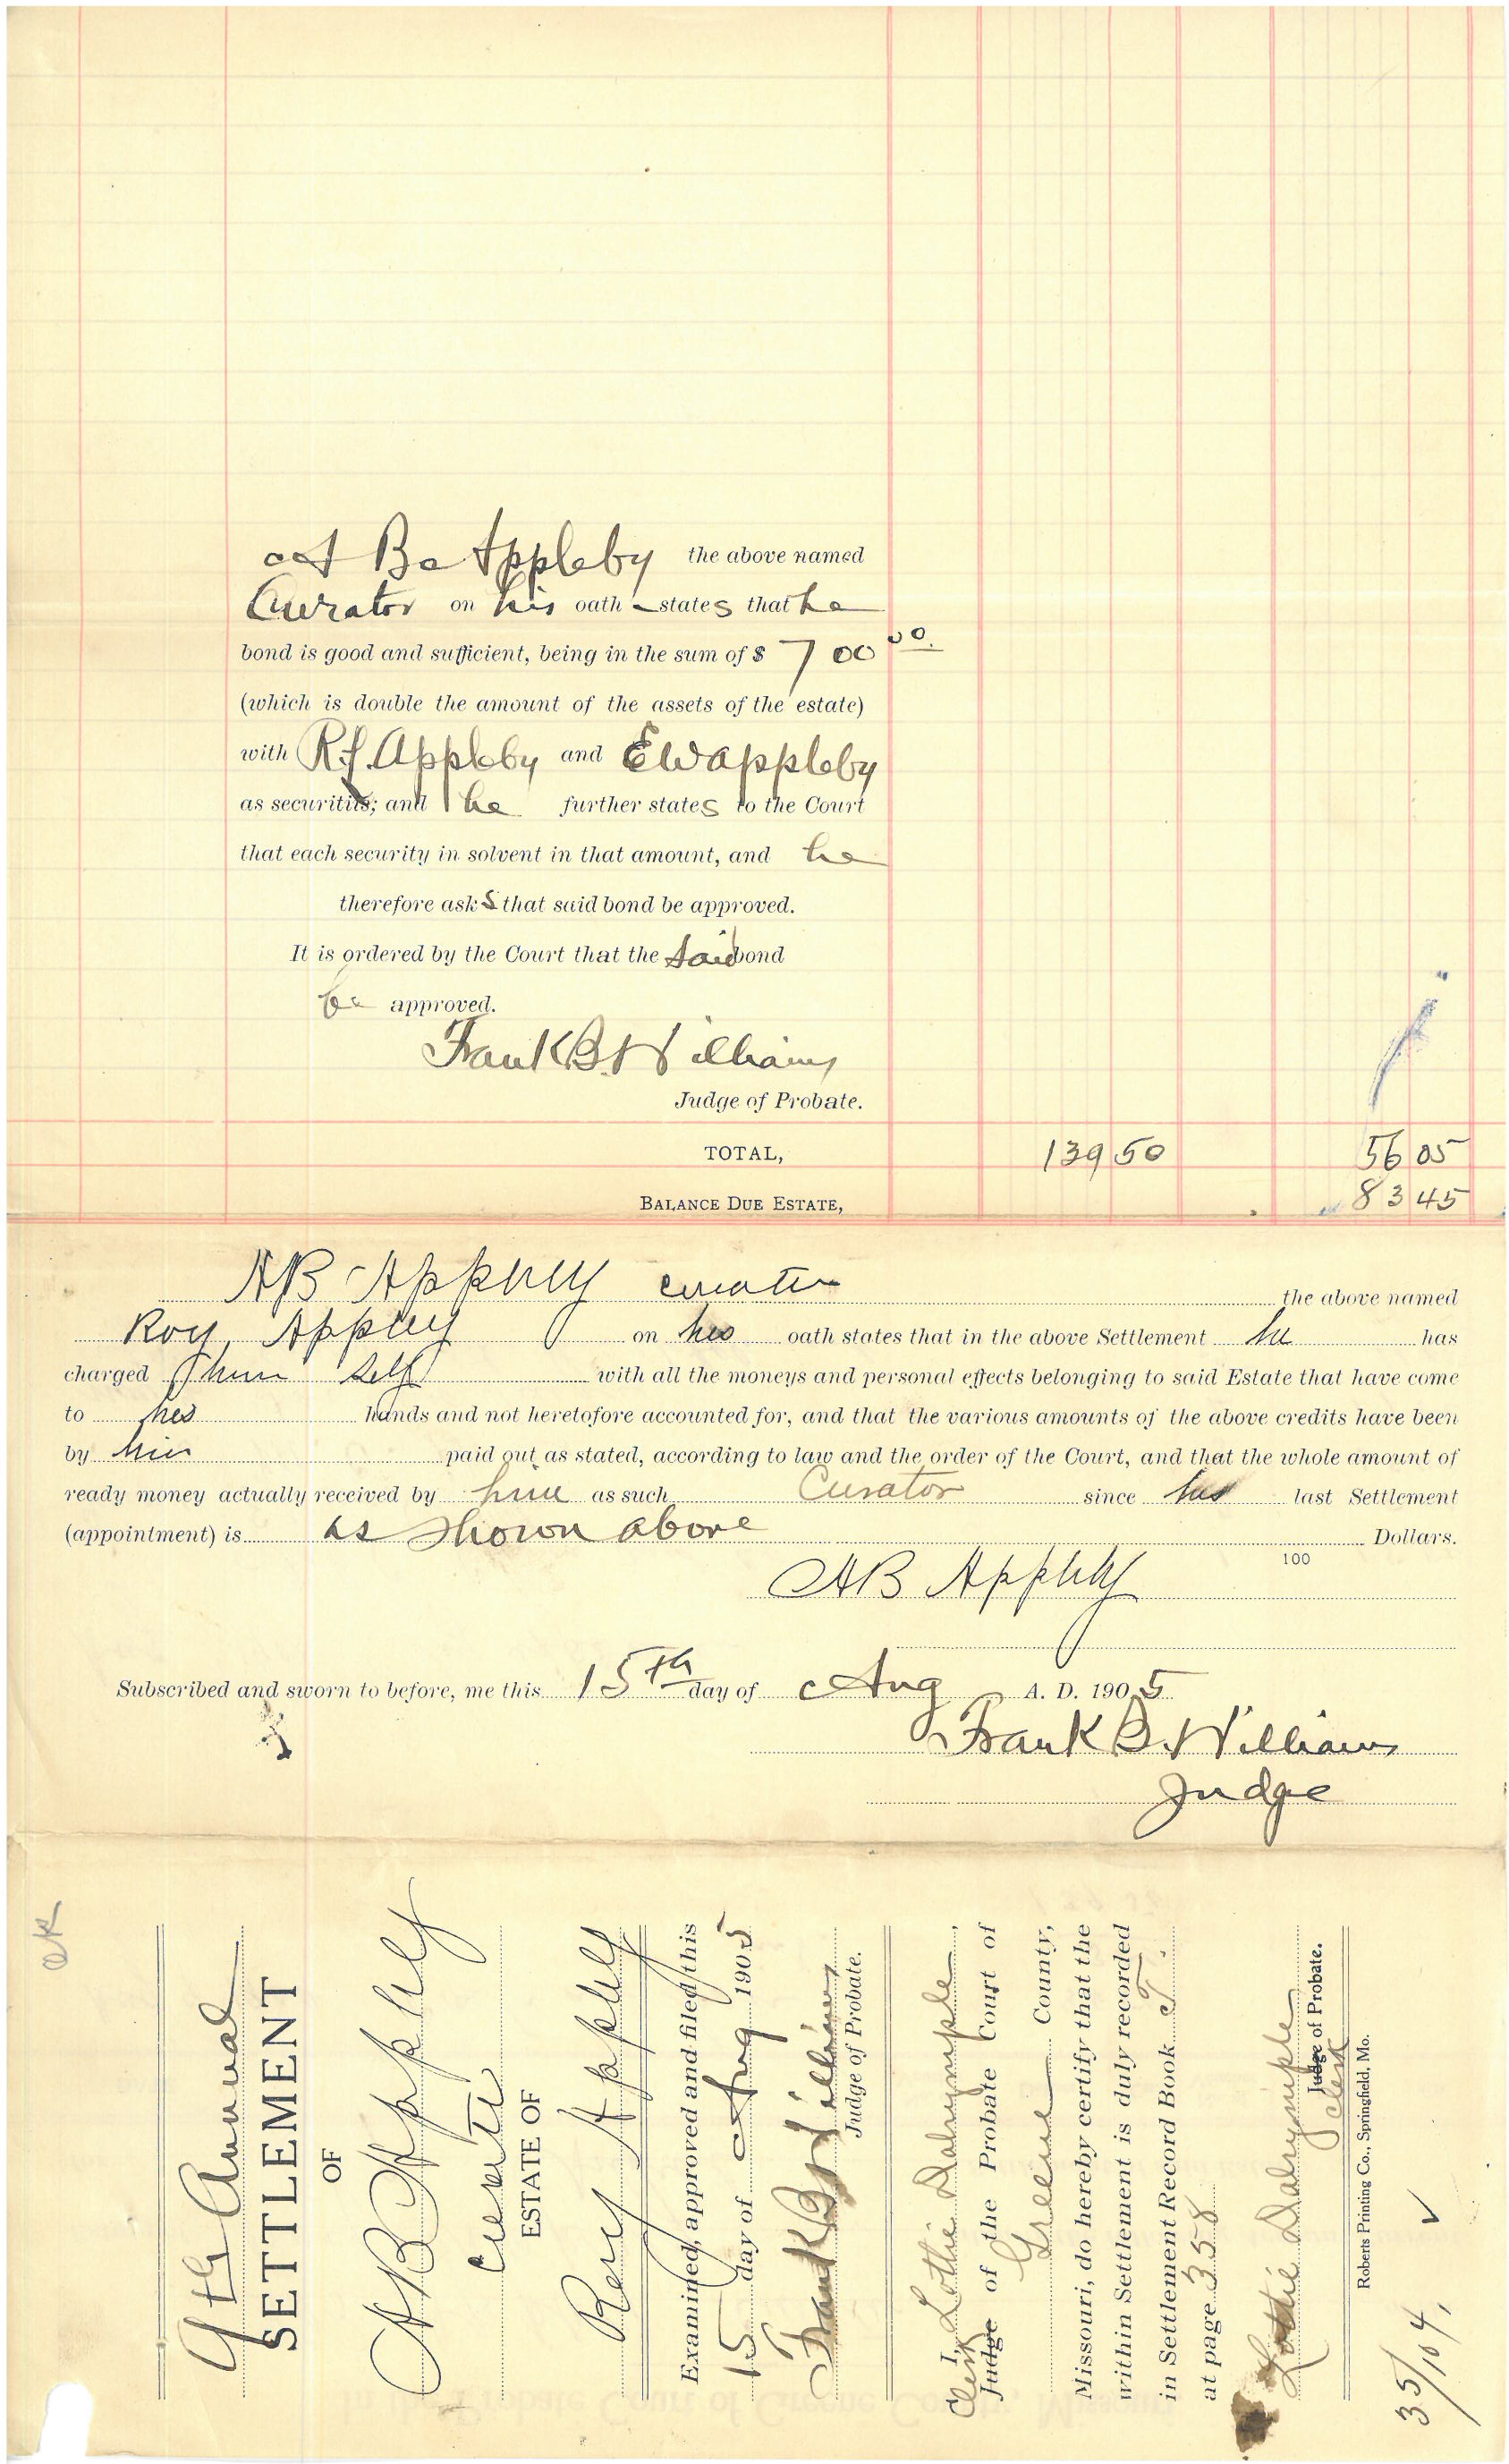 A B Appleby the above named
Curator on his oath states that he
bond is good and sufficient, being in the sum of $ 700 00
(which is double the amount of the assets of the estate)
with R.J. Appleby and E W Appleby
as securities; and he further states to the Court
that each security in solvent in that amount, and he
therefore asks that said bond be approved.
It is ordered by the Court that the said bond
be approved.
Frank B. Williams
Judge of Probate.
TOTAL, 139 50 56 05
BALANCE DUE ESTATE, 83 45
AB Appleby curator the above named
Roy Appleby on his oath states that in the above Settlement he has
charged him self with all the moneys and personal effects belonging to said Estate that have come
to his hands and not heretofore accounted for, and that the various amounts of the above credits have been
by him paid out as stated, according to law and the order of the Court, and that the whole amount of
ready money actually received by him as such Curator since his last Settlement
(appointment) is as shown above Dollars.
100
AB Appleby
Subscribed and sworn to before, me this 15th day of Aug A. D. 1905
Frank B. Williams
Judge
OK
9th Annual
SETTLEMENT
OF
AB Appleby
Curator
ESTATE OF
Roy Appleby
Examined, approved and filed this
15 day of Aug 1905
Frank B Williams
Judge of Probate.
I, Lottie Dalrymple,
Clerk Judge of the Probate Court of
Greene County,
Missouri, do hereby certify that the
within Settlement is duly recorded
in Settlement Record Book T.
at page 358
Lottie Dalrymple
Judge of Probate.
Clerk
Roberts Printing Co., Springfield, Mo.
35/104,